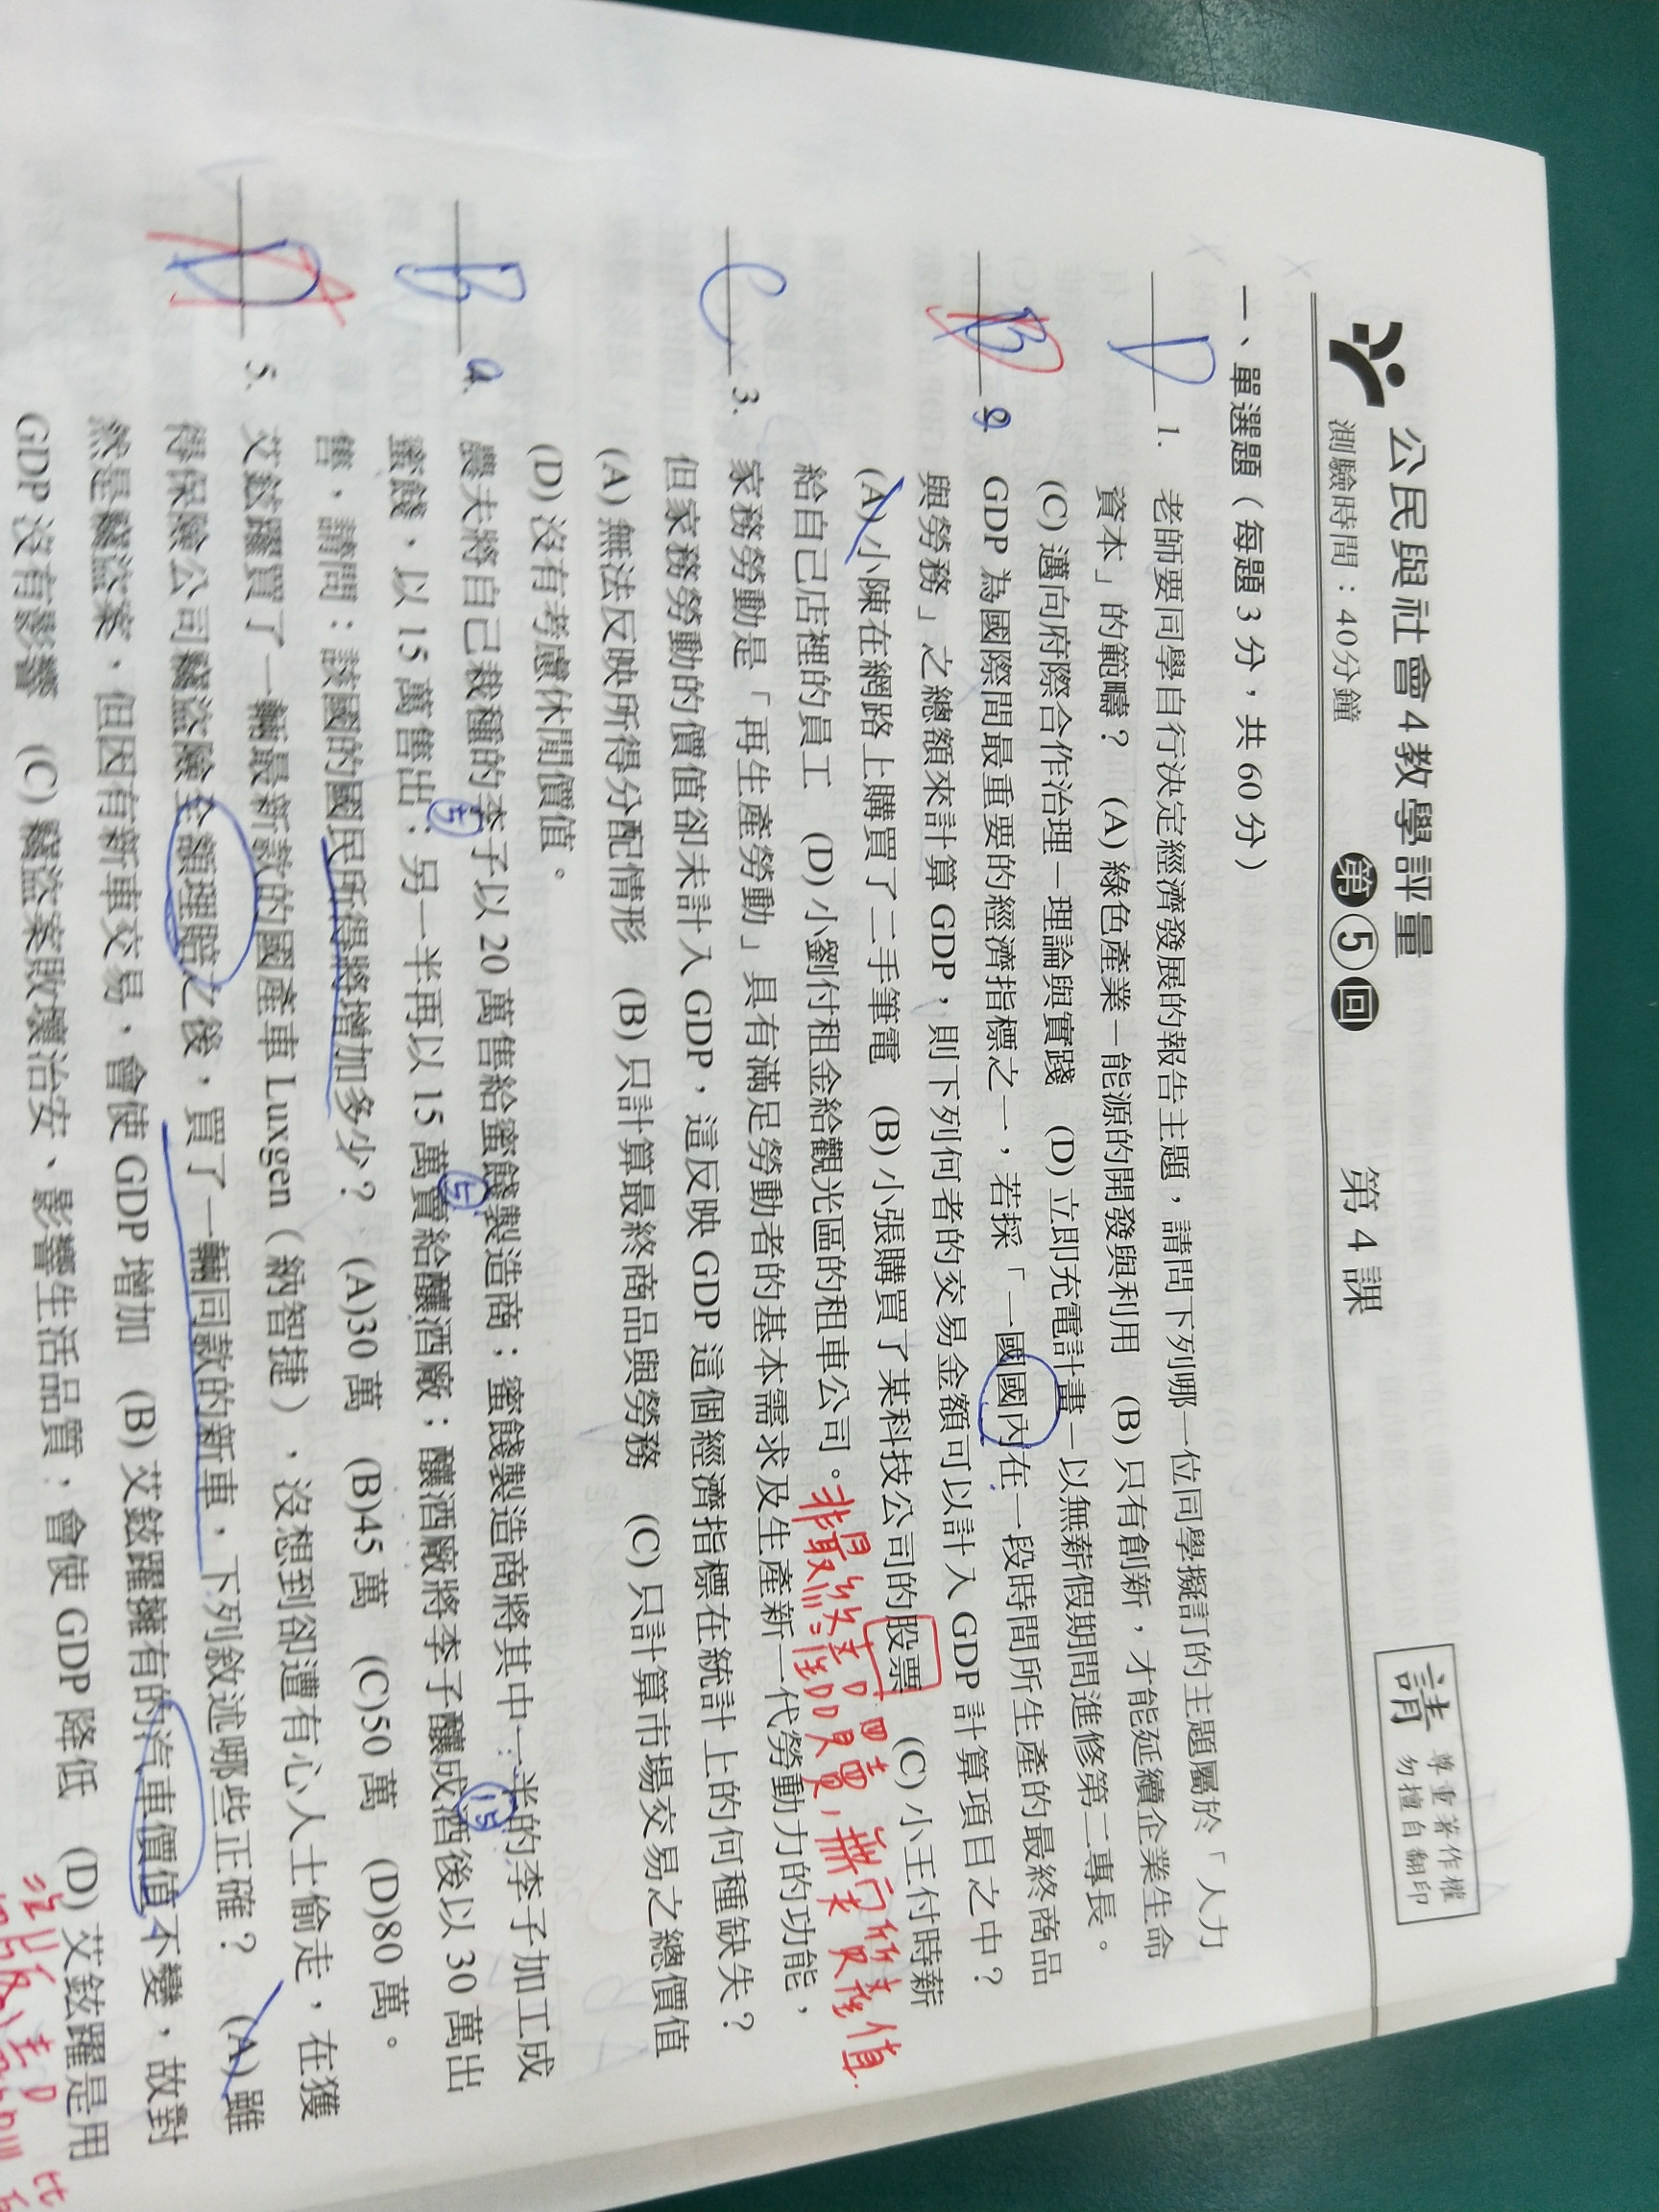 公民與社會4教學評量 第⑤回 第4課
測驗時間：40分鐘
請 尊重著作權 勿擅自翻印
一、單選題（每題3分，共60分）
D 1. 老師要同學自行決定經濟發展的報告主題，請問下列哪一位同學擬訂的主題屬於「人力
資本」的範疇？ (A)綠色產業－能源的開發與利用 (B)只有創新，才能延續企業生命
(C)邁向府際合作治理－理論與實踐 (D)立即充電計畫－以無薪假期間進修第二專長。
GDP為國際間最重要的經濟指標之一，若採「一國國內在一段時間所生產的最終商品
與勞務」之總額來計算GDP，則下列何者的交易金額可以計入GDP計算項目之中？
(A)小陳在網路上購買了二手筆電 (B)小張購買了某科技公司的股票 (C)小王付時薪
給自己店裡的員工 (D)小劉付租金給觀光區的租車公司。
C 3. 家務勞動是「再生產勞動」具有滿足勞動者的基本需求及生產新一代勞動力的功能，
但家務勞動的價值卻未計入GDP，這反映GDP這個經濟指標在統計上的何種缺失？
(A)無法反映所得分配情形 (B)只計算最終商品與勞務 (C)只計算市場交易之總價值
(D)沒有考慮休閒價值。
B 4. 農夫將自己栽種的李子以20萬售給蜜餞製造商；蜜餞製造商將其中一半的李子加工成
蜜餞，以15萬售出；另一半再以15萬賣給釀酒廠；釀酒廠將李子釀成酒後以30萬出
售，請問：該國的國民所得將增加多少？ (A)30萬 (B)45萬 (C)50萬 (D)80萬。
5. 艾鉉躍買了一輛最新款的國產車Luxgen（納智捷），沒想到卻遭有心人士偷走，在獲
得保險公司竊盜險全額理賠之後，買了一輛同款的新車，下列敘述哪些正確？ (A)雖
然是竊盜案，但因有新車交易，會使GDP增加 (B)艾鉉躍擁有的汽車價值不變，故對
GDP沒有影響 (C)竊盜案敗壞治安、影響生活品質，會使GDP降低 (D)艾鉉躍是用